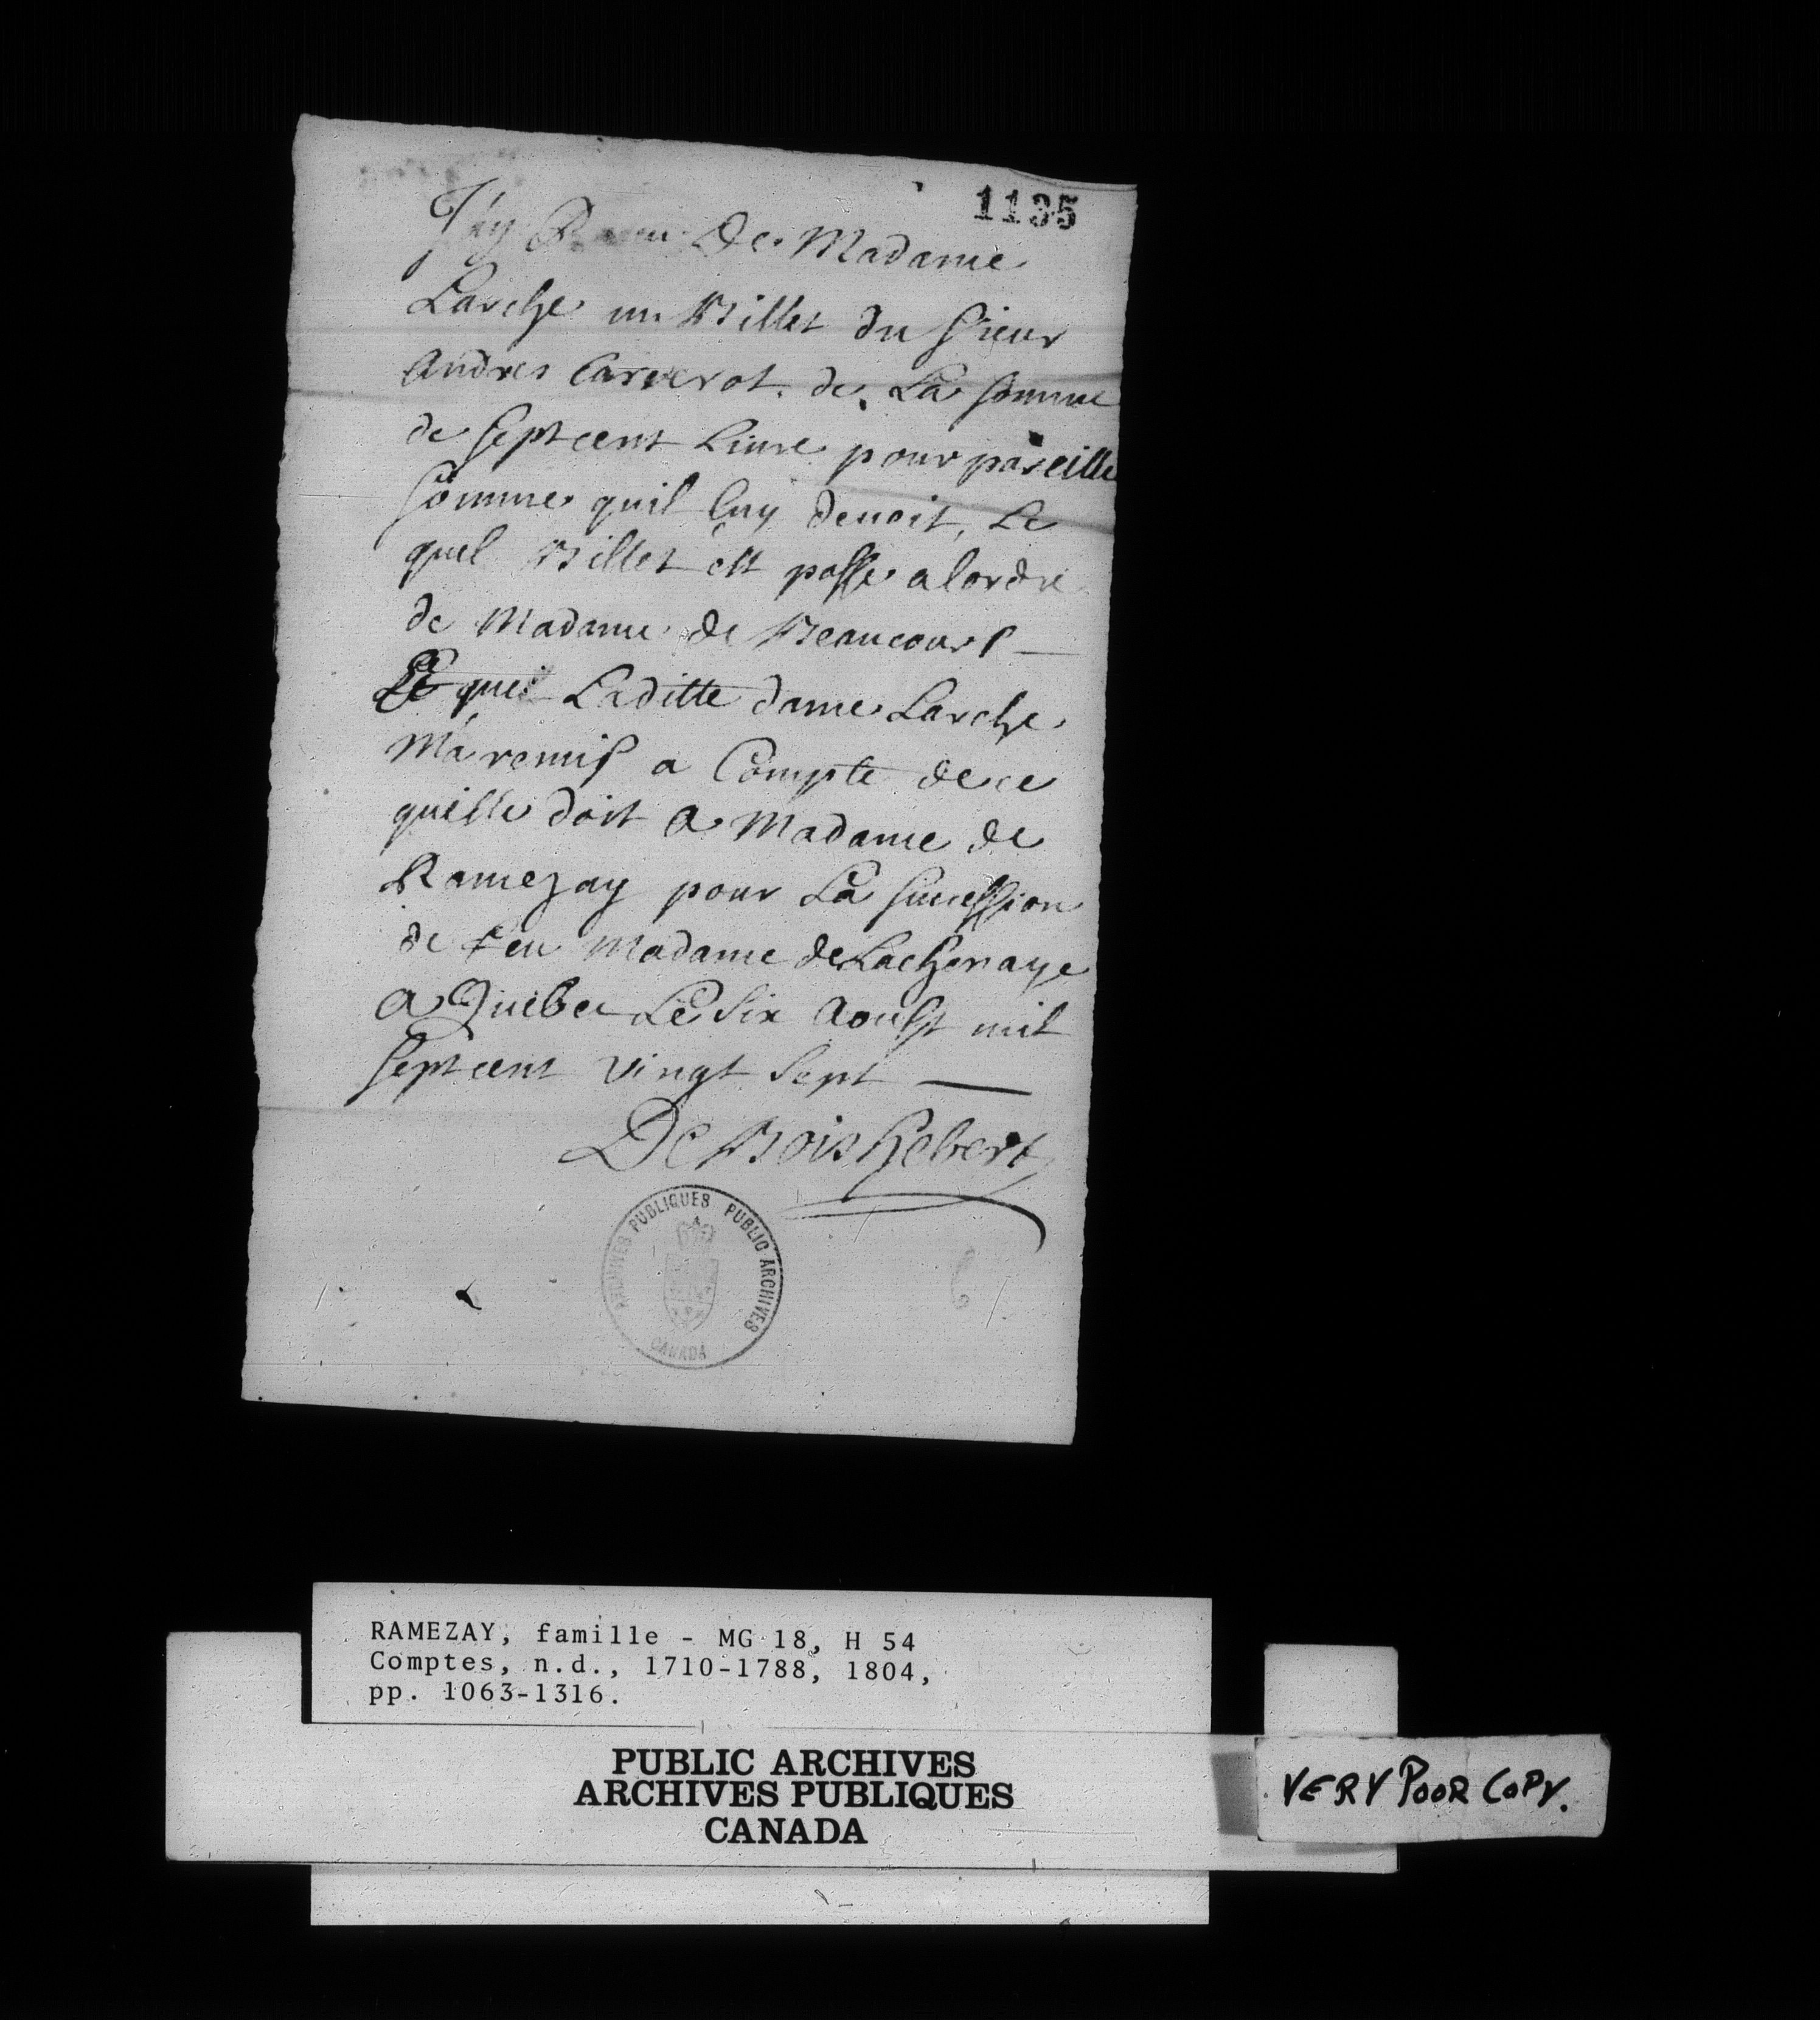 1135
J'ay Receu De Madame
Larche un Billet du sieur
Andres Carrerot de La somme
de sept cent Livre pour pareille
somme quil luy devoit, Le
quel Billet est passe a lordre
de Madame de Beaucourt
Ce que Laditte dame Larche
M'a remis a Compte de ce
quelle doit a Madame de
Ramezay pour La succession
de feu Madame de Lachenaye
a Quebec Le six aoust mil
sept cent vingt sept
De Boishebert
ARCHIVES PUBLIQUES PUBLIC ARCHIVES
CANADA
RAMEZAY, famille - MG 18, H 54
Comptes, n.d., 1710-1788, 1804,
pp. 1063-1316.
PUBLIC ARCHIVES
ARCHIVES PUBLIQUES
CANADA
VERY POOR COPY.